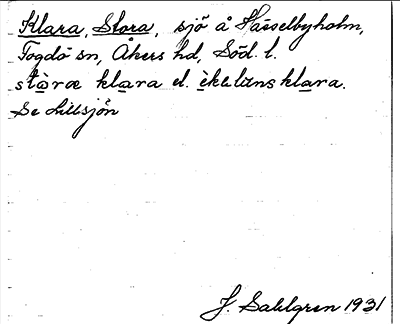 Klara, Stora, sjö å Hässelbyholm,
Fogdö sn, Åkers hd, Söd. l.
stòrœ klara el.
Se Lillsjön
J. Sahlgren 1931